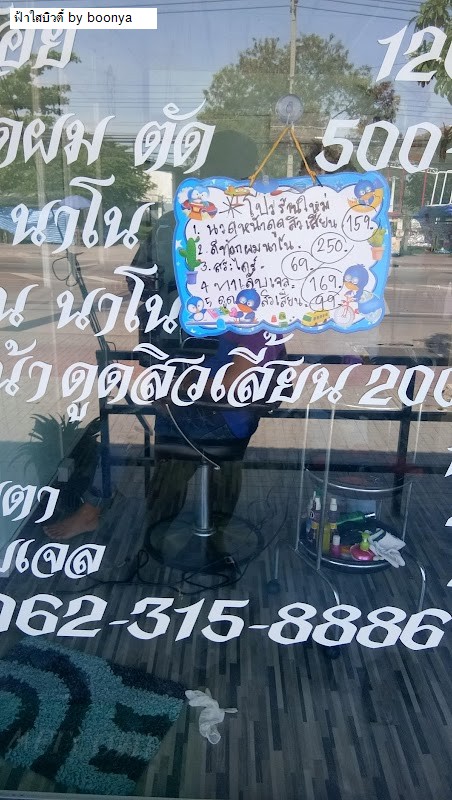 ฟ้าใสบิวตี้ by boonya
อย 120
ดผม ตัด 500
นาโน
น นาโน
น้า ดูดสิวเสี้ยน 200
ตา
บเจล
062-315-8886
โปรร้านใหม่
1. นวดหน้าดูดสิวเสี้ยน 159.-
2. ดีท็อกผมนาโน. 250.-
3. สระไดร์. 69.-
4 ทาเล็บเจล. 169.-
5 ดูดสิวเสี้ยน. 99.-